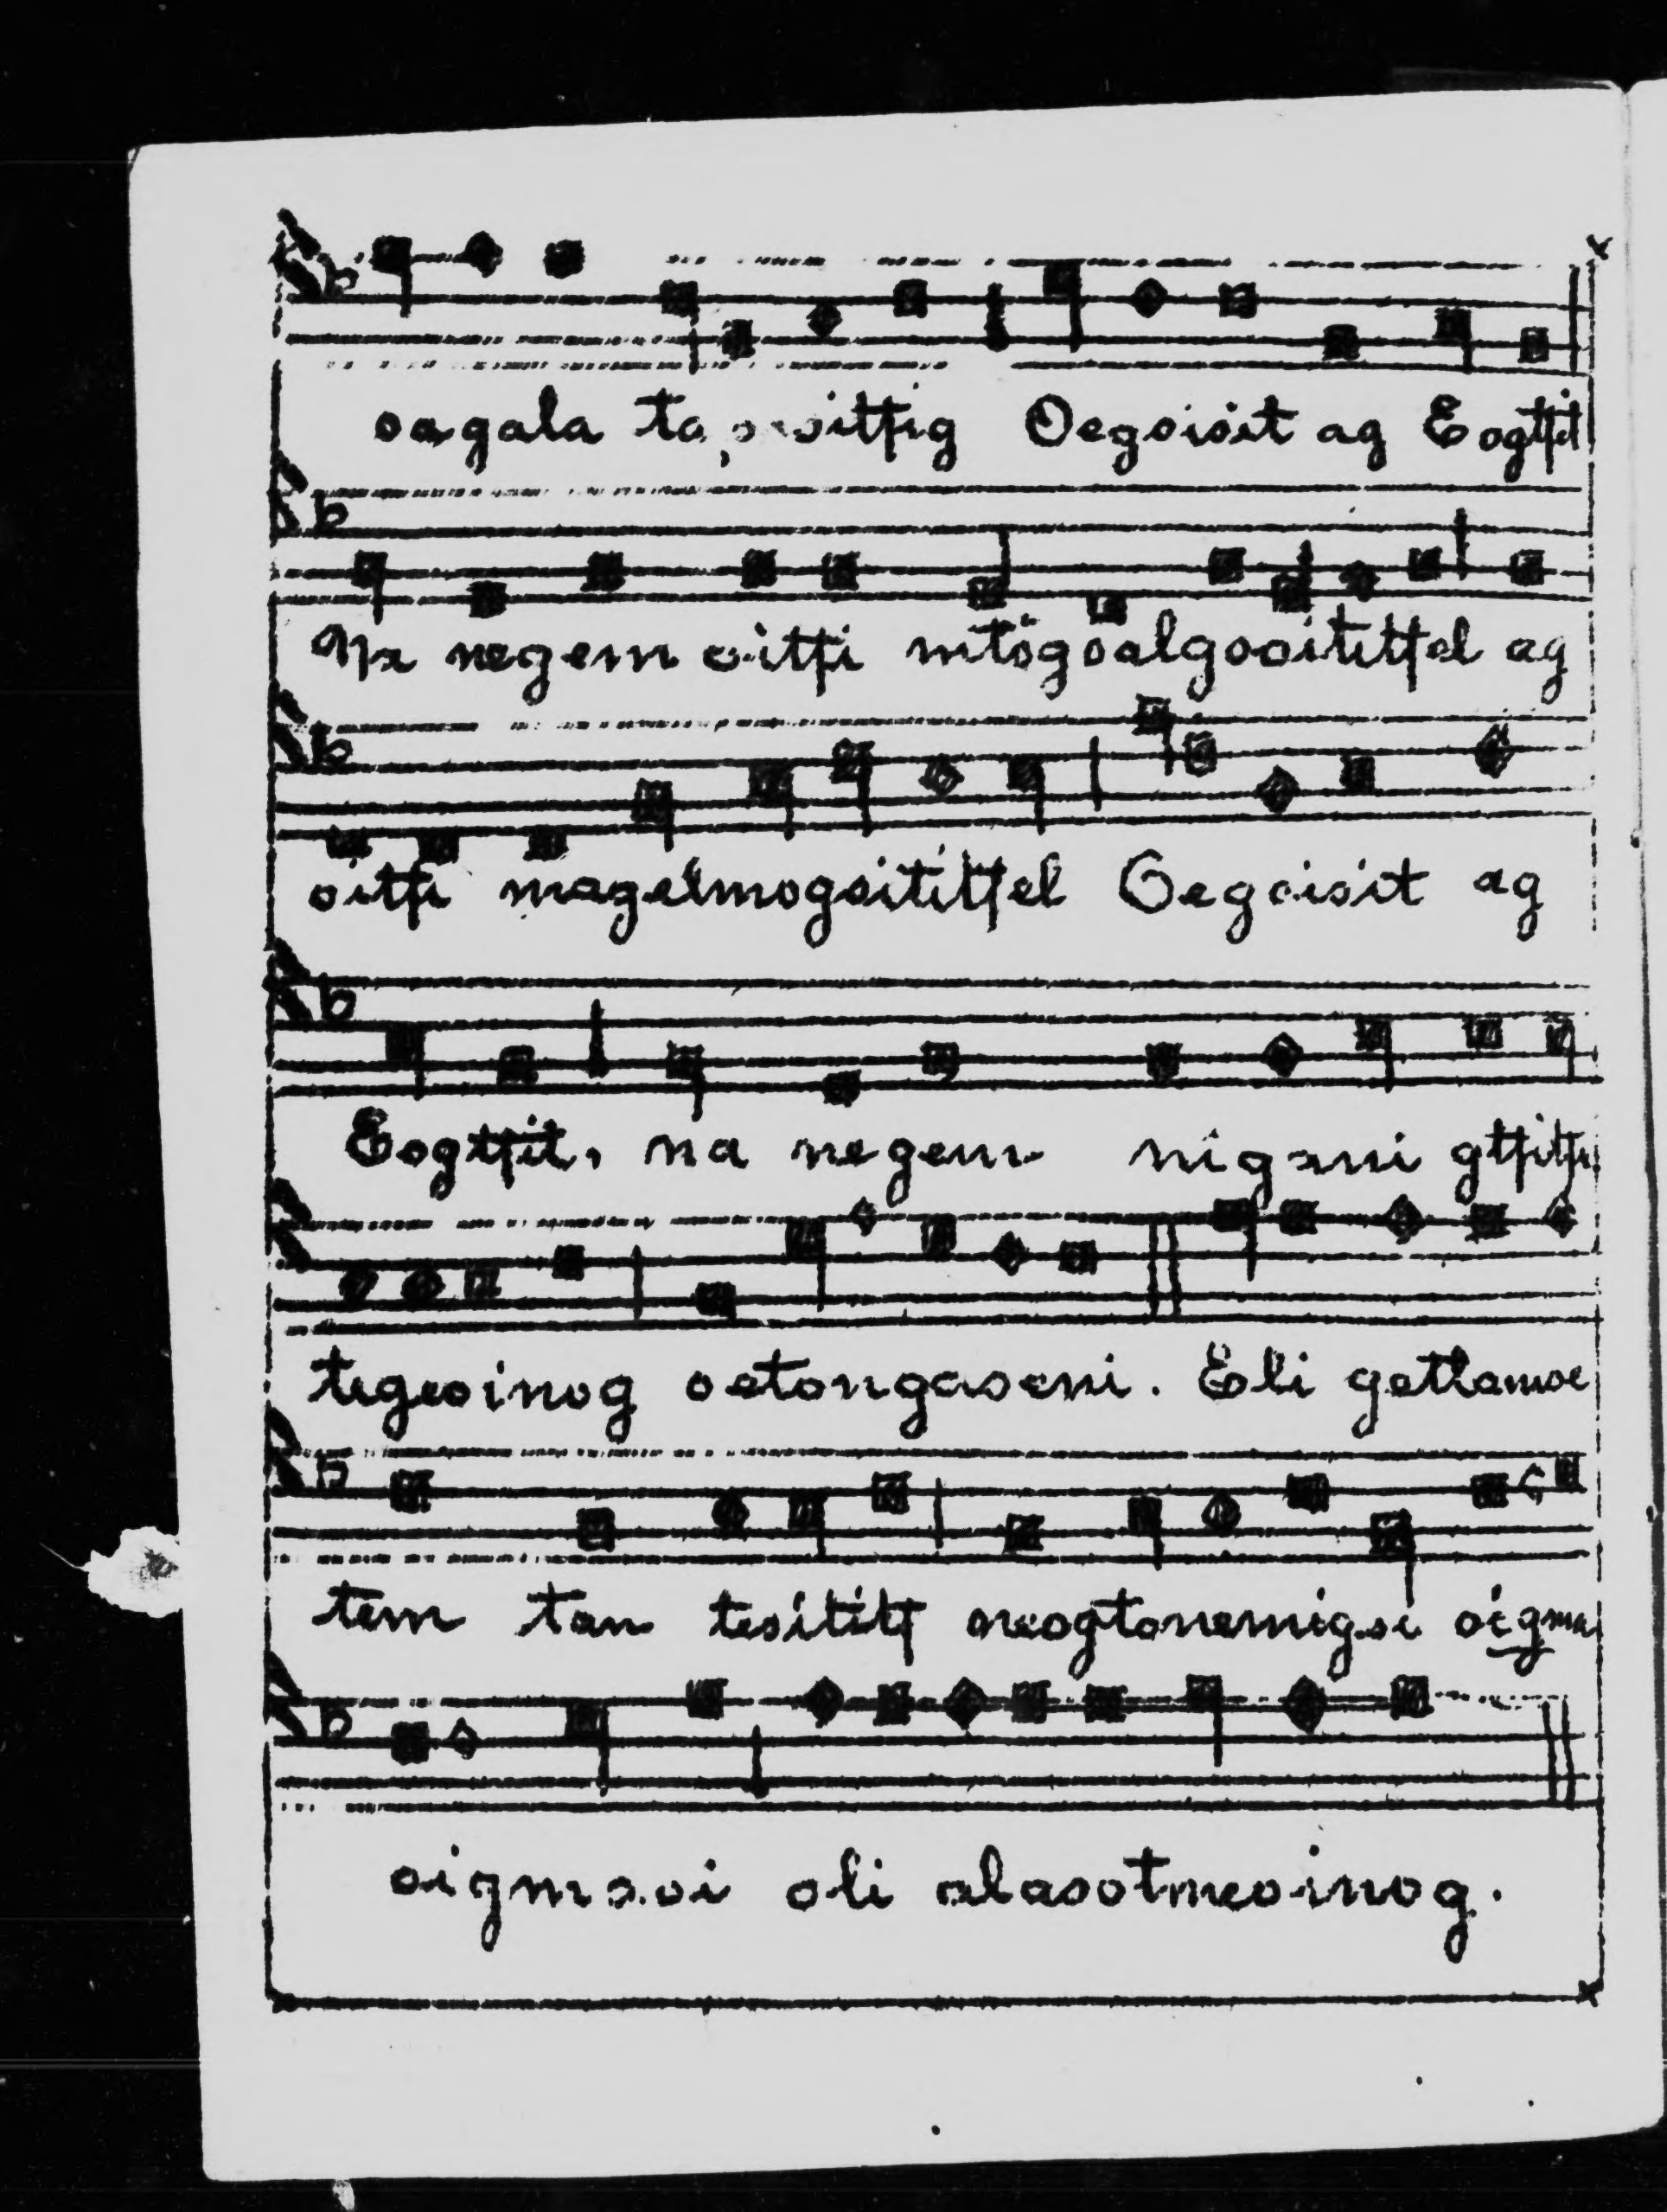 oagala Oegoisit ag Eogtfit
negem oitfi mtögoalgooititfel ag
oitfi magelmogoititfel Oegoisit ag
Eogtfit, na negem nigani gtfitfi
tegeoinog oetongaseni. Eli getlamoe
tem tan tesititf neogtonemigsi oigma
oli alasotmeoinog.